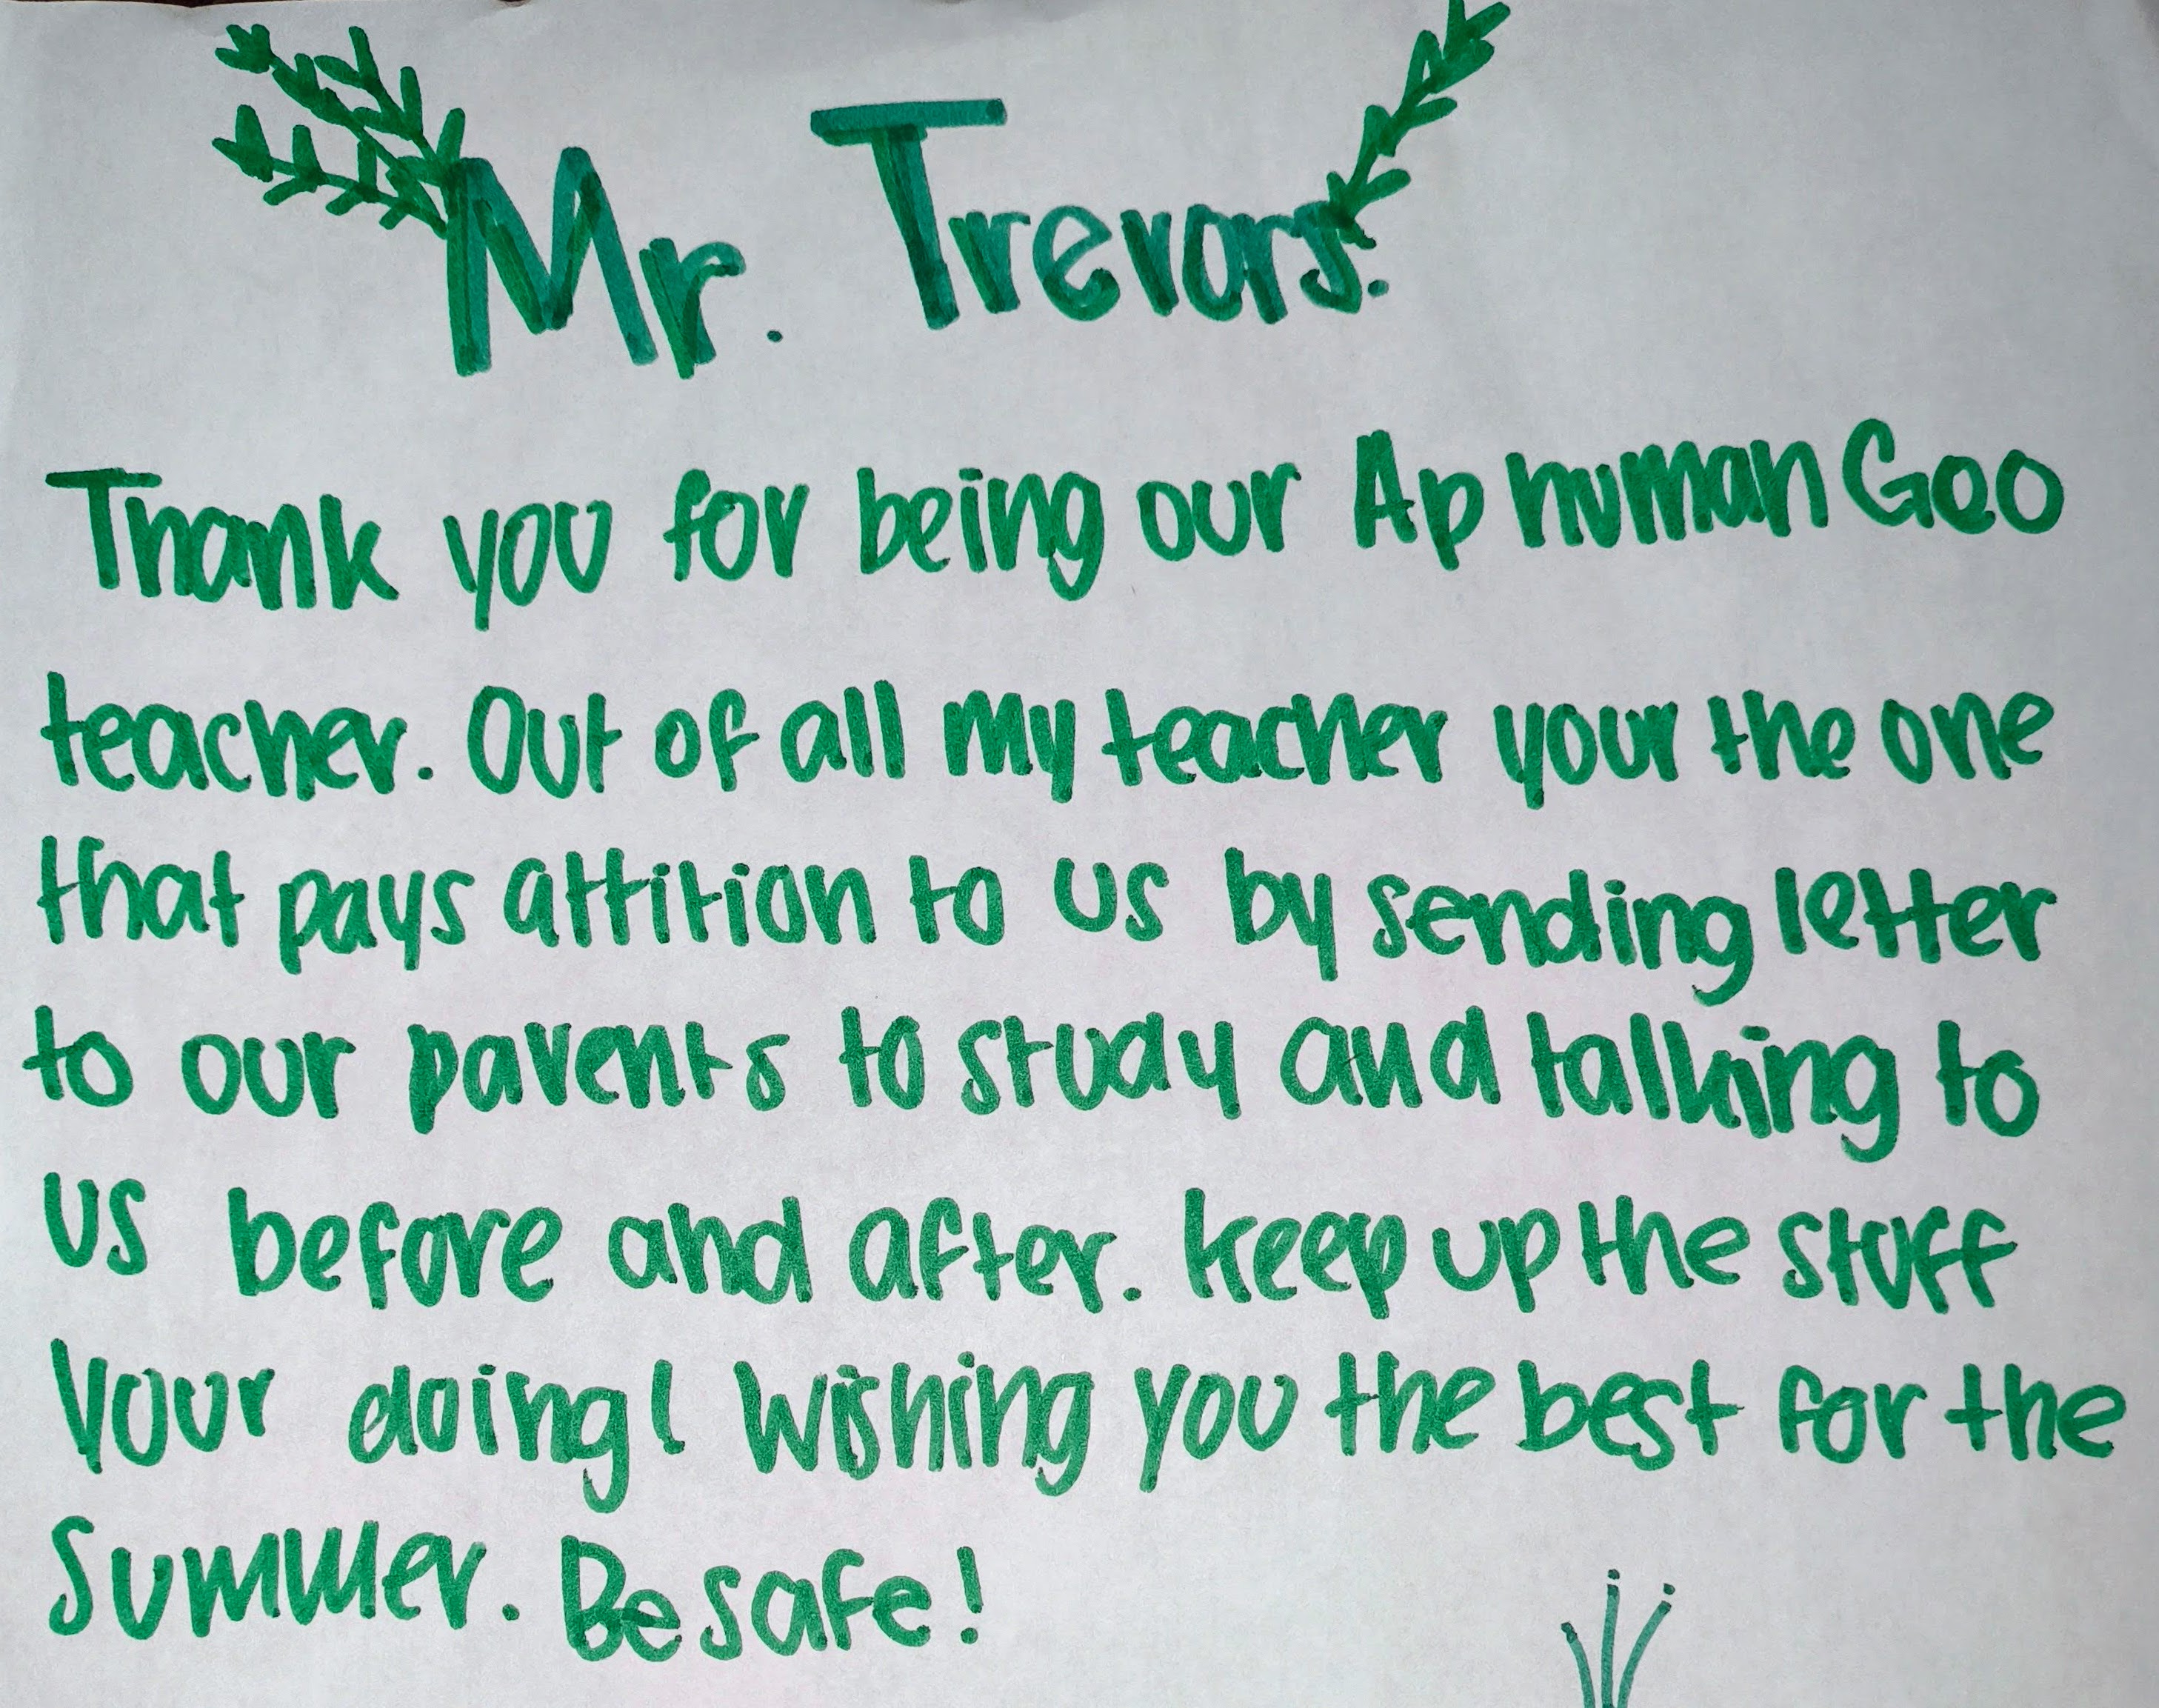 Mr. Trevors:
Thank you for being our Ap human Geo
teacher. Out of all my teacher your the one
that pays attition to us by sending letter
to our parents to study and talking to
us before and after. keep up the stuff
your doing! Wishing you the best for the
Summer. Be safe!